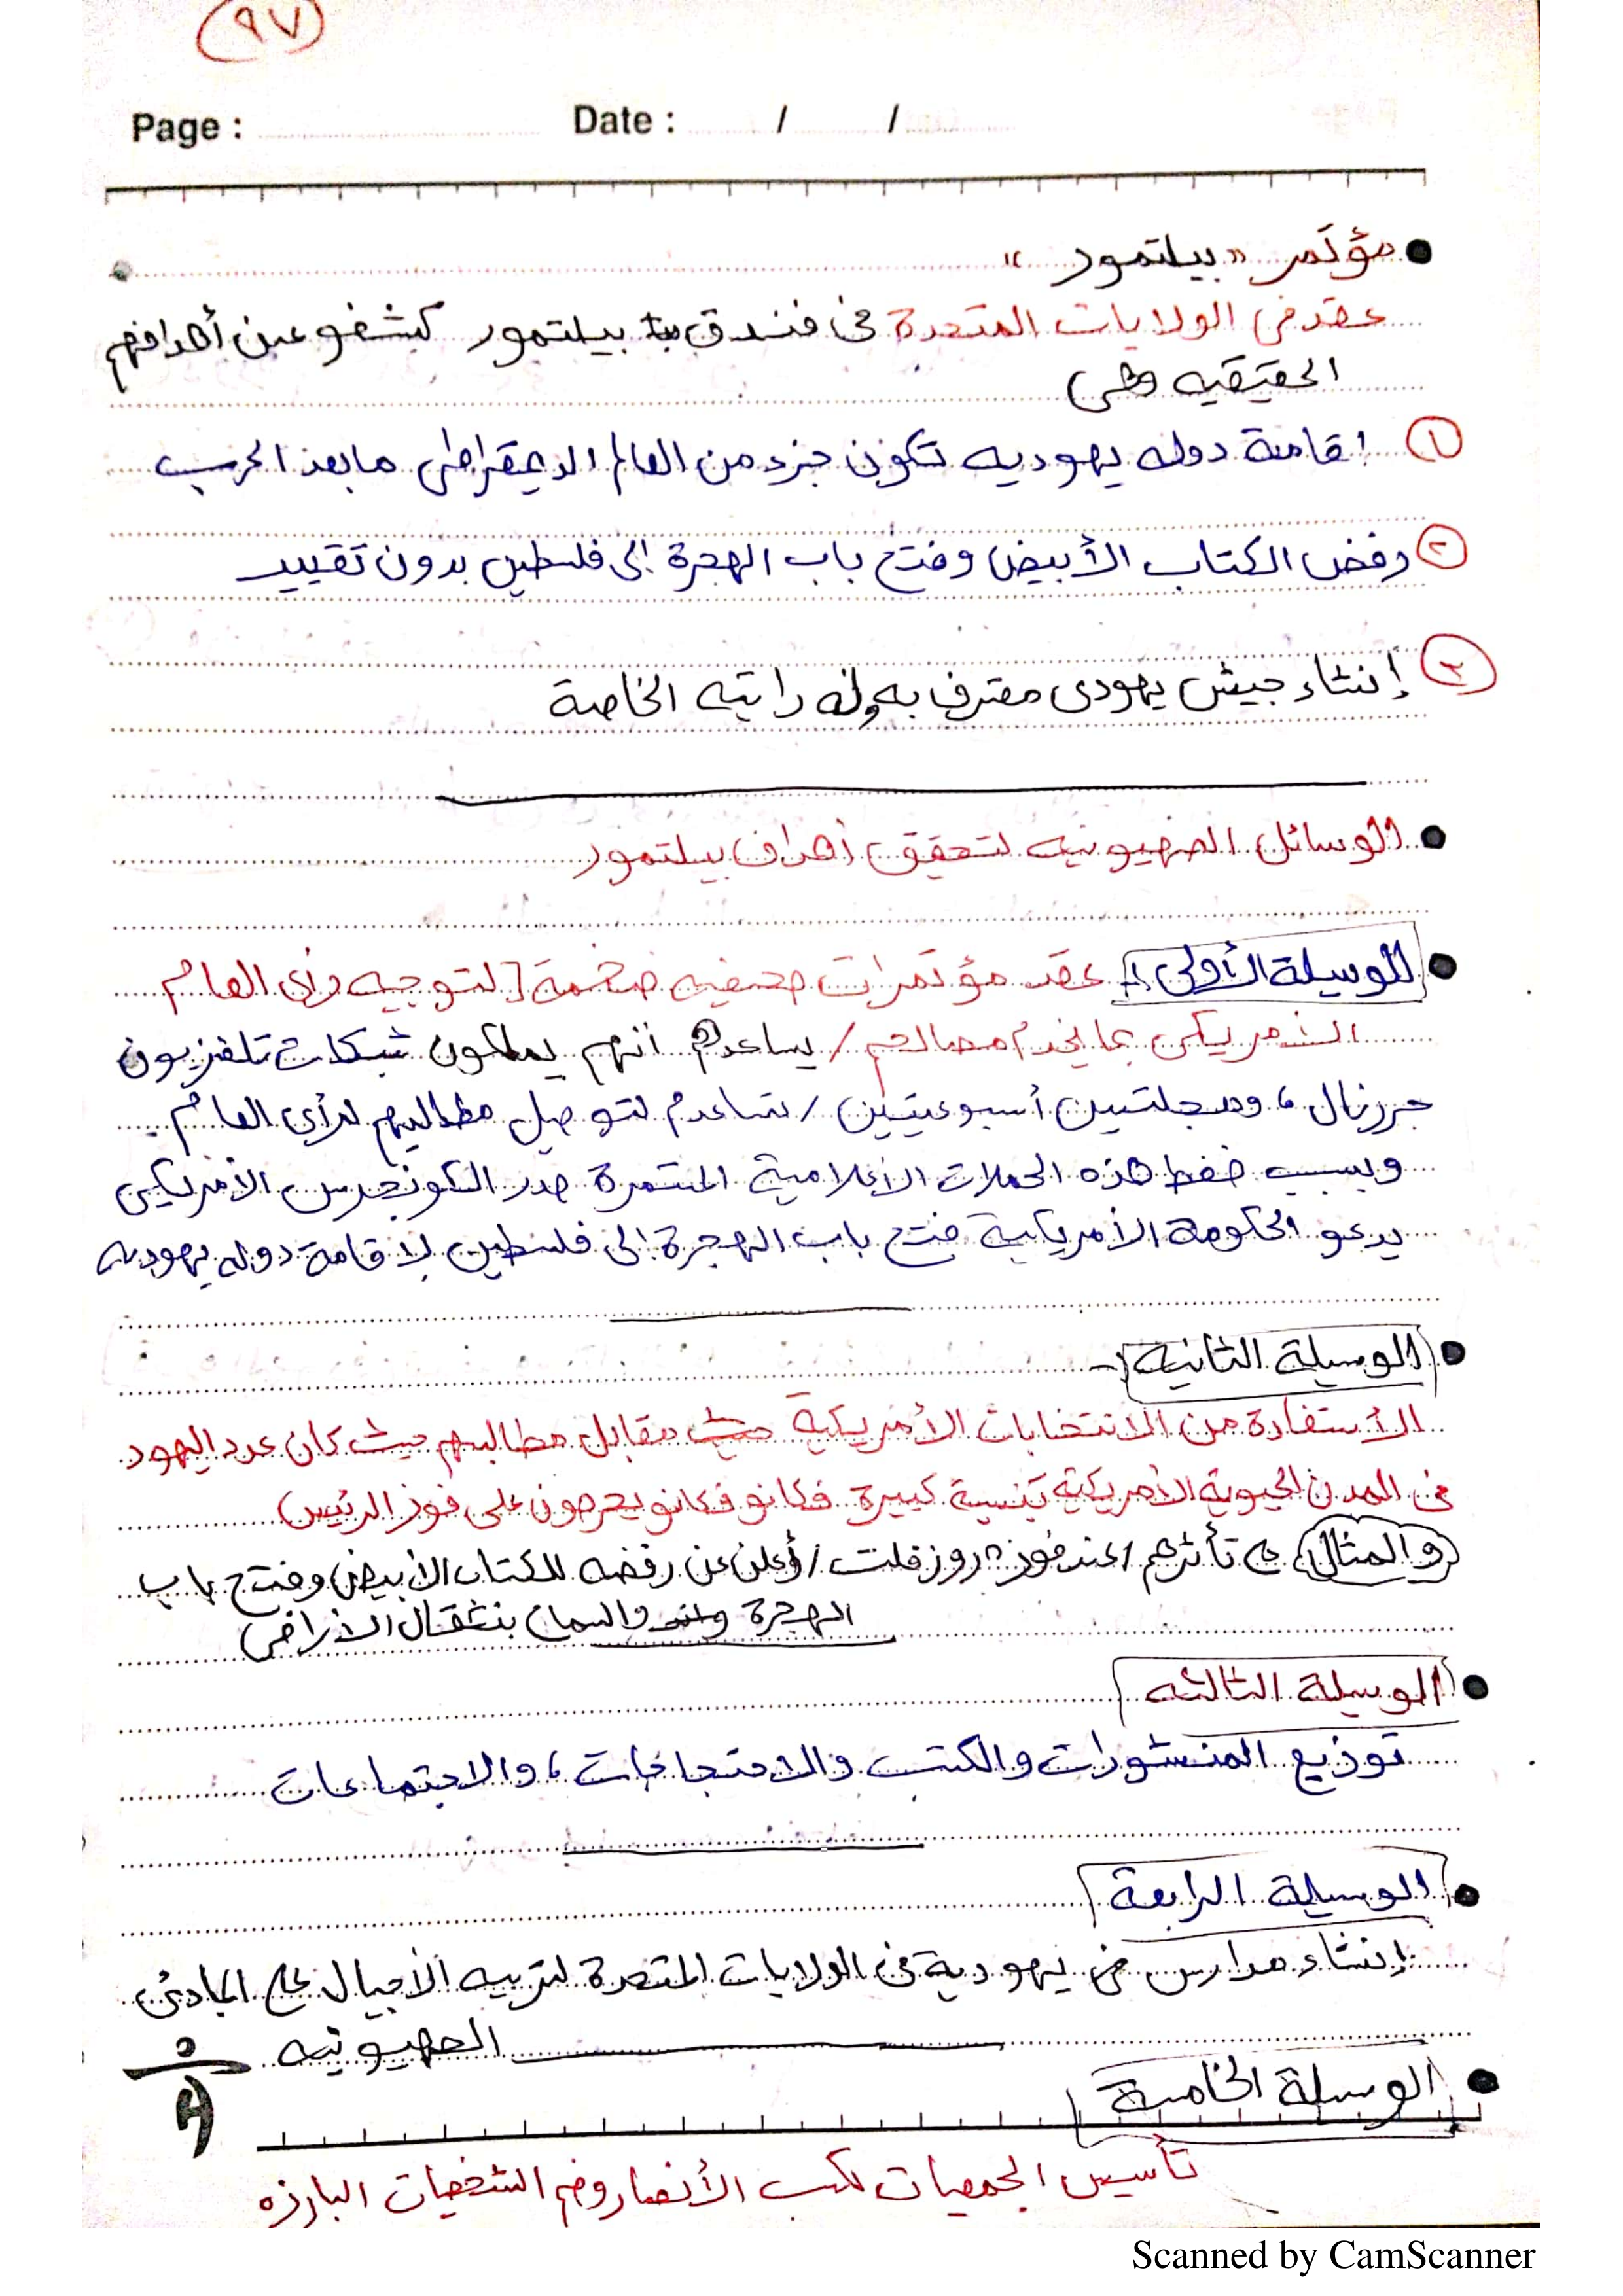 ٩٧
Page : Date : / /
مؤتمر "بيلتمور"
عقد في الولايات المتحدة في فندق بيلتمور كشفو عن أهدافهم
الحقيقيه وهى
١ إقامة دوله يهوديه تكون جزء من العالم الديمقراطى ما بعد الحرب
٢ رفض الكتاب الأبيض وفتح باب الهجرة إلى فلسطين بدون تقييد
٣ إنشاء جيش يهودى معترف به وله رايته الخاصة
الوسائل الصهيونيه لتحقيق أهداف بيلتمور
الوسيلة الأولى :- عقد مؤتمرات صحفيه ضخمة [لتوجيه رأى العام
الأمريكى بما يخدم مصالحم / يساعدهم أنهم يملكون شبكات تلفزيون
جرنال، ومجلتين أسبوعيتين / تساعدم لتوصيل مطاليهم لرأى العام.
وبسبب ضغط هذه الحملات الأعلامية المستمرة صدر الكونجرس الأمريكى
يدعو الحكومة الأمريكية فتح باب الهجرة إلى فلسطين لإقامة دوله يهوديه
الوسيلة الثانيه :-
الأستفادة من الانتخابات الأمريكية مقابل مطالبهم حيث كان عدد اليهود
فى المدن الحيوية الأمريكية بنسبة كبيرة فكانو فكانو يحرصون على فوز الرئيس
والمثال على تأثرهم / عند فوز "روزفلت / أعلن عن رفضه للكتاب الأبيض وفتح باب
الهجرة والسماح بنتقال الأراضى
الوسيلة الثالثه
توزيع المنشورات والكتب والاحتجاجات، والاجتماعات
الوسيلة الرابعة
إنشاء مدارس يهودية فى الولايات المتحدة لتربيه الأجيال على المبادئ
الصهيونيه
الوسيلة الخامسة
تأسيس الجمعيات لكسب الأنصار وضم الشخصيات البارزه
Scanned by CamScanner